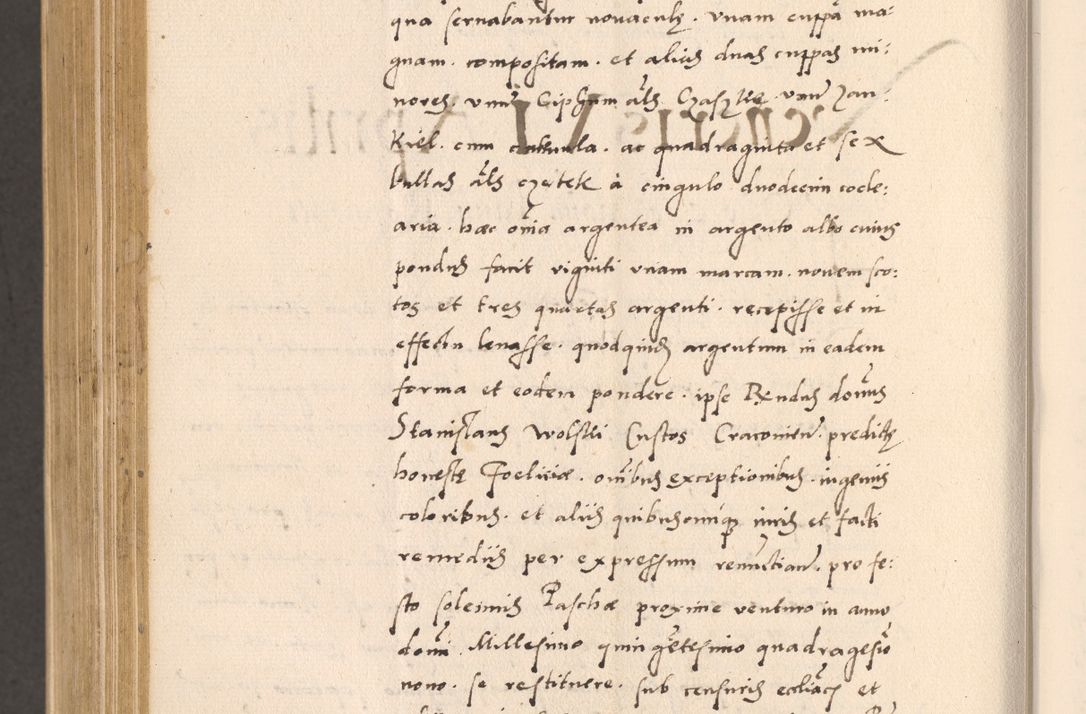 qua seruabantur nouaculę. Vnam cuppā ma-
gnam. compositam. et alias duas cuppas mi-
nores. vnū Ciphum ałs Czaszkę vnū Zan-
kiel. cum catenula. ac quadraginta et sex
bullas ałs czetek à cingulo duodecim cocle-
aria. haec oīnia argentea in argento albo cuius
pondus facit viginti vnam marcam. nouem sco-
tos et tres quartas argenti. recepisse et in
effectu leuasse. quodquidem argentum in eadem
forma et eodem pondere. ipse Rndus domīus
Stanislaus Wolski Custos Cracouien. predictę
honestę Foeliciae. omībus exceptionibus. ingeniis
coloribus. et aliis quibuscunq̃ iuris et facti
remediis per expressum renūctian. pro fe-
sto solemnis Paschae proxime venturo in anno
domī. Millesimo quingētesimo quadragesīo
nono. se restituere. sub censuris eccliāc et